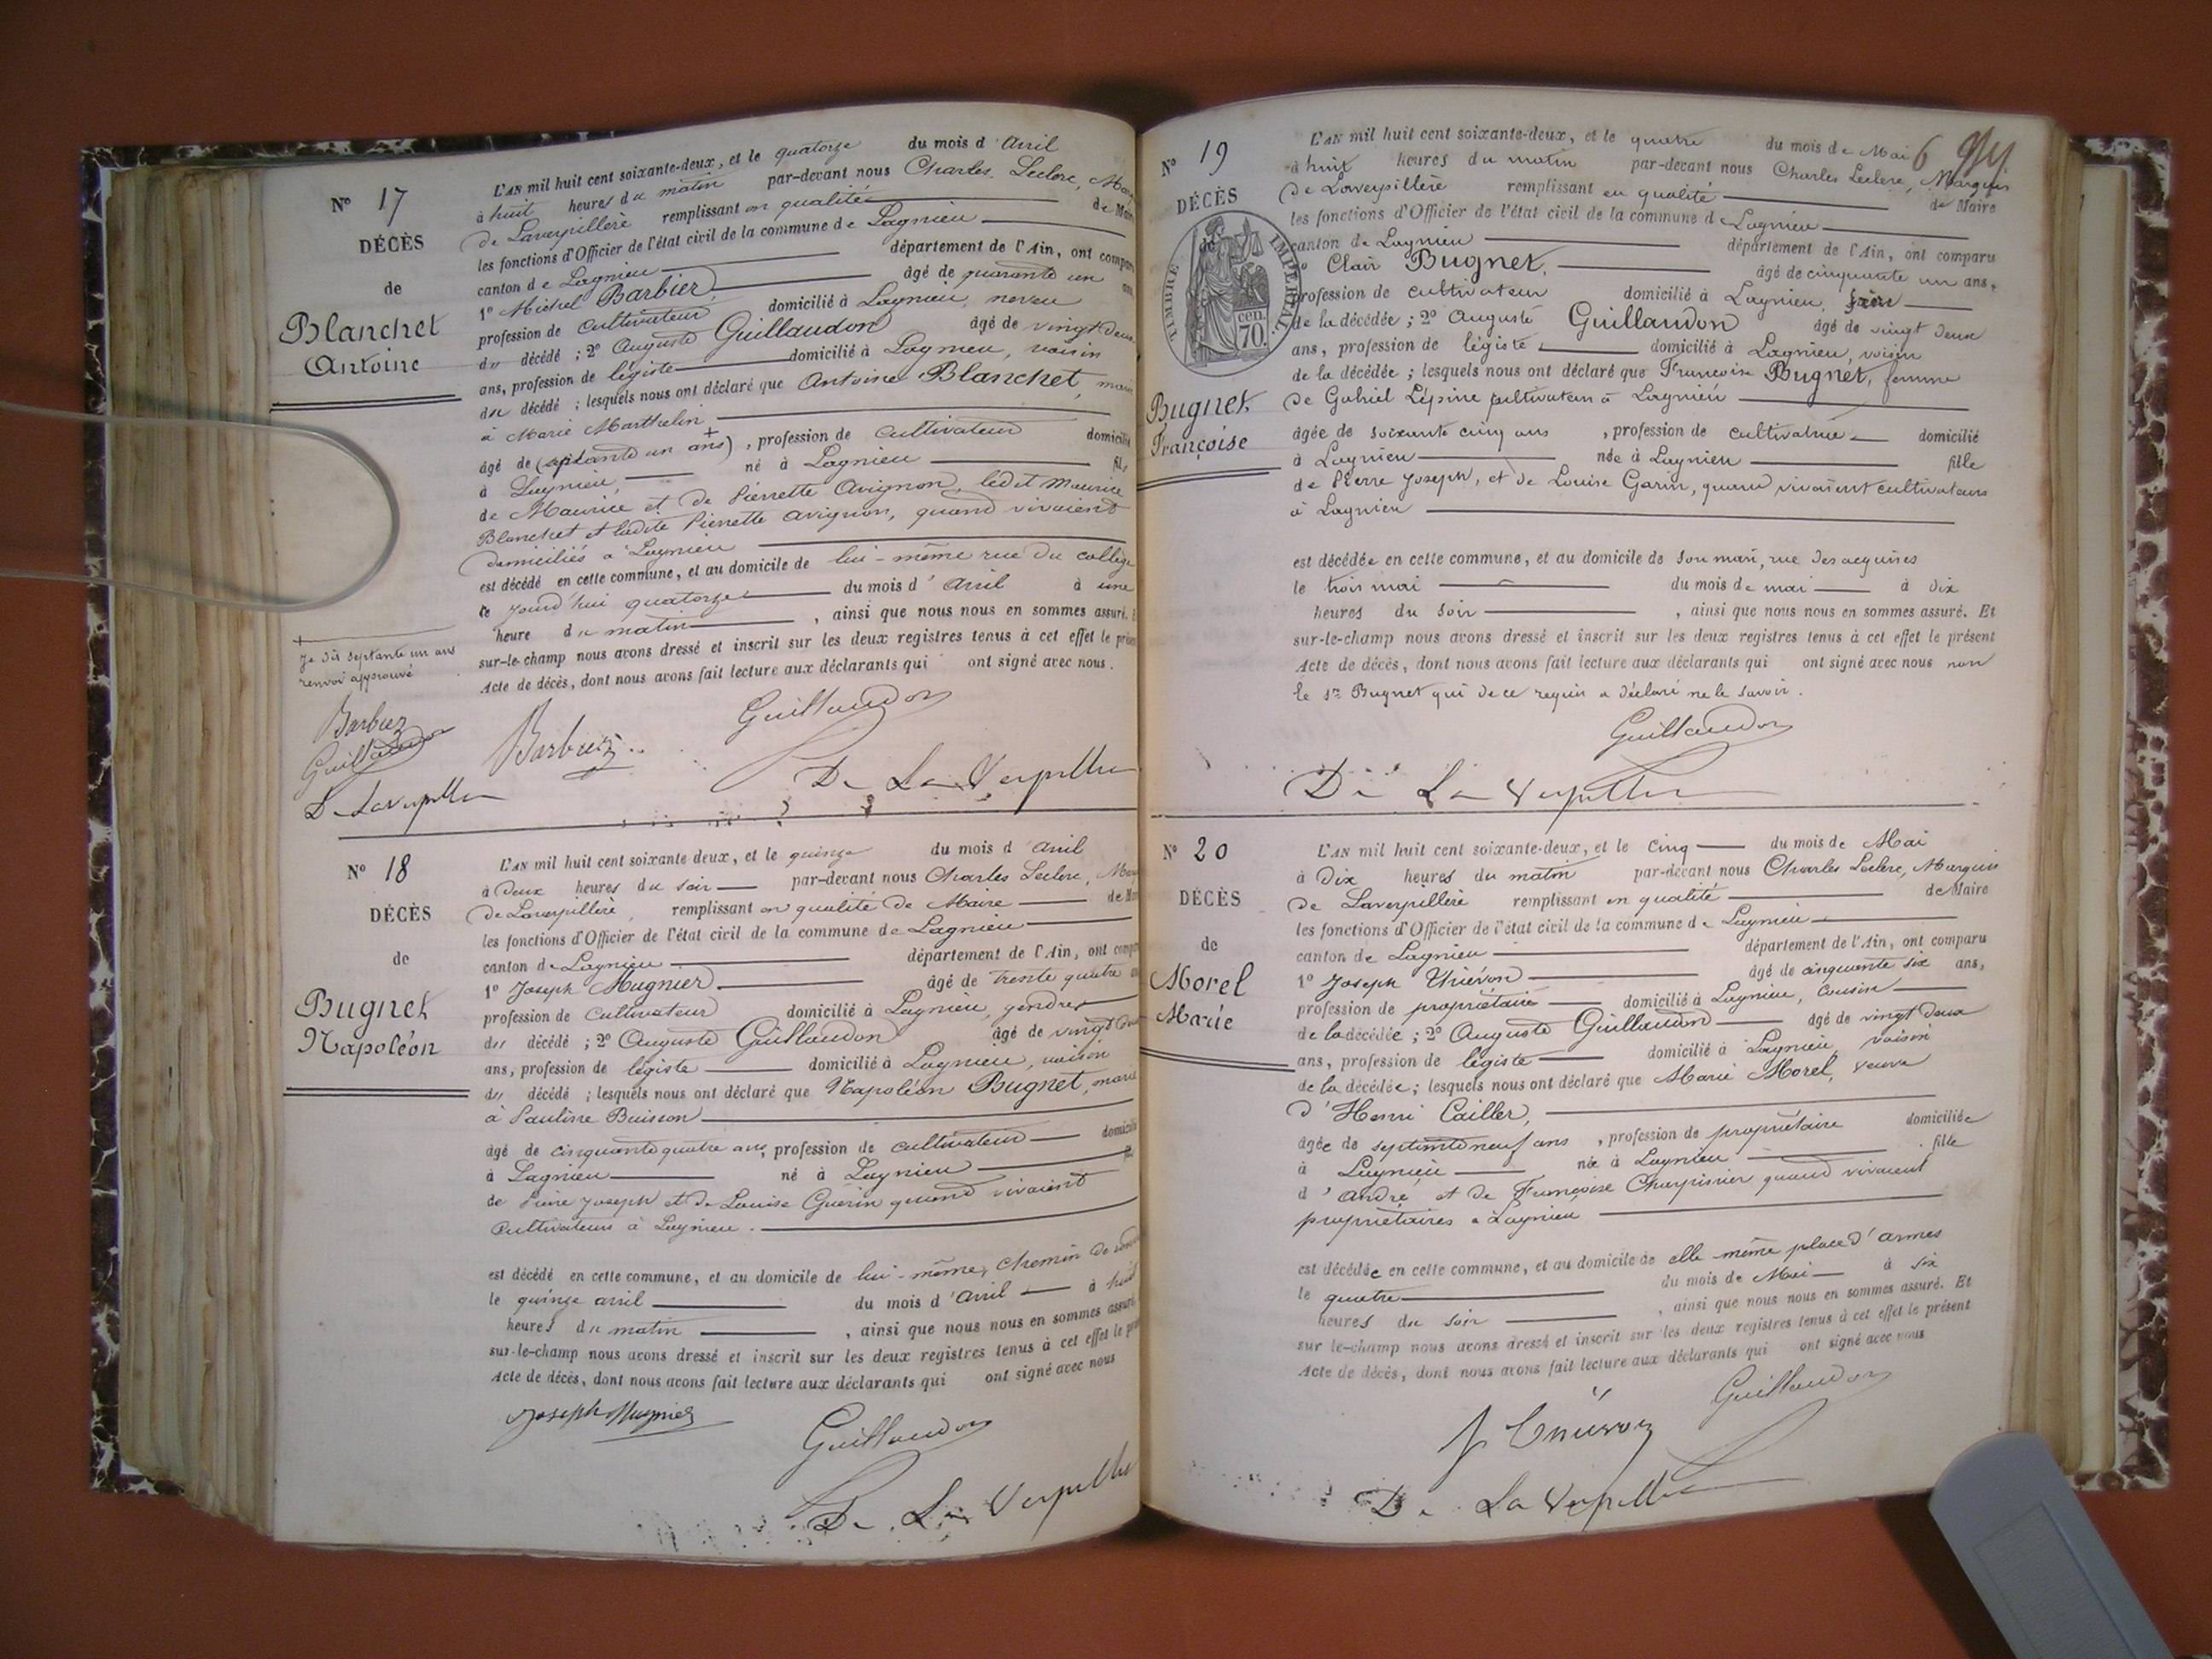 Nº 17
DÉCÈS
de
Blanchet
Antoine
L'AN mil huit cent soixante-deux, et le quatorze du mois d'Avril
à huit heures du matin par-devant nous Charles Leclerc,
de Laverpillère remplissant en qualité de Maire
les fonctions d'Officier de l'état civil de la commune de Lagnieu
canton de Lagnieu département de l'Ain, ont comparu
1º Michel Barbier, âgé de quarante un
profession de cultivateur domicilié à Lagnieu, neveu
du décédé ; 2º Auguste Guillaudon âgé de vingt deux
ans, profession de légiste domicilié à Lagnieu, voisin
du décédé ; lesquels nous ont déclaré que Antoine Blanchet,
à Marie Marthelin
âgé de (septante un ans), profession de cultivateur domicilié
à Lagnieu, né à Lagnieu fils
de Maurice et de Pierrette Avignon, ledit Maurice
Blanchet et ladite Pierrette Avignon, quand vivaient
domiciliés à Lagnieu
est décédé en cette commune, et au domicile de lui-même rue du collège
le jourd'hui quatorze du mois d'Avril à une
heure du matin, ainsi que nous nous en sommes assuré. Et
sur-le-champ nous avons dressé et inscrit sur les deux registres tenus à cet effet le présent
Acte de décès, dont nous avons fait lecture aux déclarants qui ont signé avec nous.
Je dis septante un ans
renvoi approuvé
Barbier
Guillaudon
De Laverpillère
Barbier
Guillaudon
De La Verpillière
Nº 18
DÉCÈS
de
Bugnet
Napoléon
L'AN mil huit cent soixante-deux, et le quinze du mois d'Avril
à deux heures du soir par-devant nous Charles Leclerc,
de Laverpillère, remplissant en qualité de Maire
les fonctions d'Officier de l'état civil de la commune de Lagnieu
canton de Lagnieu département de l'Ain, ont comparu
1º Joseph Mugnier âgé de trente quatre
profession de cultivateur domicilié à Lagnieu, gendre
du décédé ; 2º Auguste Guillaudon âgé de vingt deux
ans, profession de légiste domicilié à Lagnieu, voisin
du décédé ; lesquels nous ont déclaré que Napoléon Bugnet, marié
à Pauline Buisson
âgé de cinquante quatre ans, profession de cultivateur domicilié
à Lagnieu né à Lagnieu fils
de Pierre Joseph et de Louise Guérin quand vivaient
cultivateurs à Lagnieu.
est décédé en cette commune, et au domicile de lui-même, chemin de
le quinze avril du mois d'Avril à huit
heures du matin, ainsi que nous nous en sommes assuré
sur-le-champ nous avons dressé et inscrit sur les deux registres tenus à cet effet le
Acte de décès, dont nous avons fait lecture aux déclarants qui ont signé avec nous
Joseph Mugnier
Guillaudon
De La Verpillière
6
Nº 19
DÉCÈS
de
TIMBRE IMPERIAL
70. cen.
Bugnet
Françoise
L'AN mil huit cent soixante-deux, et le quatre du mois de Mai
à huit heures du matin par-devant nous Charles Leclerc, Marquis
de Laverpillère remplissant en qualité de Maire
les fonctions d'Officier de l'état civil de la commune de Lagnieu
canton de Lagnieu département de l'Ain, ont comparu
1º Clair Bugnet, âgé de cinquante un ans,
profession de cultivateur domicilié à Lagnieu, frère
de la décédée ; 2º Auguste Guillaudon âgé de vingt deux
ans, profession de légiste domicilié à Lagnieu, voisin
de la décédée ; lesquels nous ont déclaré que Françoise Bugnet, femme
de Gabriel Lépine cultivateur à Lagnieu
âgée de soixante cinq ans, profession de cultivatrice domicilié
à Lagnieu née à Lagnieu fille
de Pierre Joseph, et de Louise Garin, quand vivaient cultivateurs
à Lagnieu
est décédée en cette commune, et au domicile de son mari, rue des
le trois mai du mois de mai à dix
heures du soir, ainsi que nous nous en sommes assuré. Et
sur-le-champ nous avons dressé et inscrit sur les deux registres tenus à cet effet le présent
Acte de décès, dont nous avons fait lecture aux déclarants qui ont signé avec nous non
le Sr Bugnet qui de ce requis a déclaré ne le savoir.
Guillaudon
De La Verpillière
Nº 20
DÉCÈS
de
Morel
Marie
L'AN mil huit cent soixante-deux, et le cinq du mois de Mai
à dix heures du matin par-devant nous Charles Leclerc, Marquis
de Laverpillère remplissant en qualité de Maire
les fonctions d'Officier de l'état civil de la commune de Lagnieu
canton de Lagnieu département de l'Ain, ont comparu
1º Joseph Thiévon âgé de cinquante six ans,
profession de propriétaire domicilié à Lagnieu, cousin
de la décédée ; 2º Auguste Guillaudon âgé de vingt deux
ans, profession de légiste domicilié à Lagnieu, voisin
de la décédée ; lesquels nous ont déclaré que Marie Morel, veuve
d'Henri Cailler,
âgée de septante neuf ans, profession de propriétaire domiciliée
à Lagnieu née à Lagnieu fille
d'André et de Françoise Charpinier quand vivaient
propriétaires à Lagnieu
est décédée en cette commune, et au domicile de elle même place d'armes
le quatre du mois de Mai à six
heures du soir, ainsi que nous nous en sommes assuré. Et
sur le-champ nous avons dressé et inscrit sur les deux registres tenus à cet effet le présent
Acte de décès, dont nous avons fait lecture aux déclarants qui ont signé avec nous
Guillaudon
J Thiévon
De La Verpillière